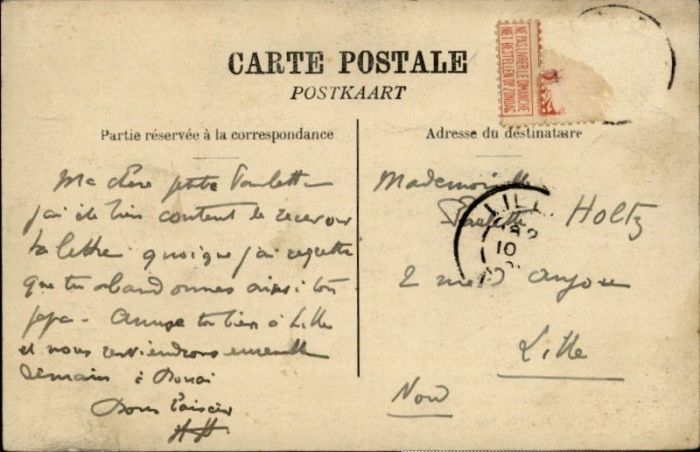 CARTE POSTALE
POSTKAART
NE PAS LIVRER LE DIMANCHE
NIET BESTELLEN OP ZONDAG
Partie réservée à la correspondance
Adresse du destinataire
Ma chère petite Paulette
j'ai été bien content de recevoir
ta lettre quoique j'ai regretté
que tu abandonnes ainsi ton
papa. Amuse toi bien à Lille
et nous reviendrons ensemble
demain à Douai
Bons baisers
Mademoiselle
Paulette Holtz
2 rue d'Anjou
Lille
Nord
LILL
10